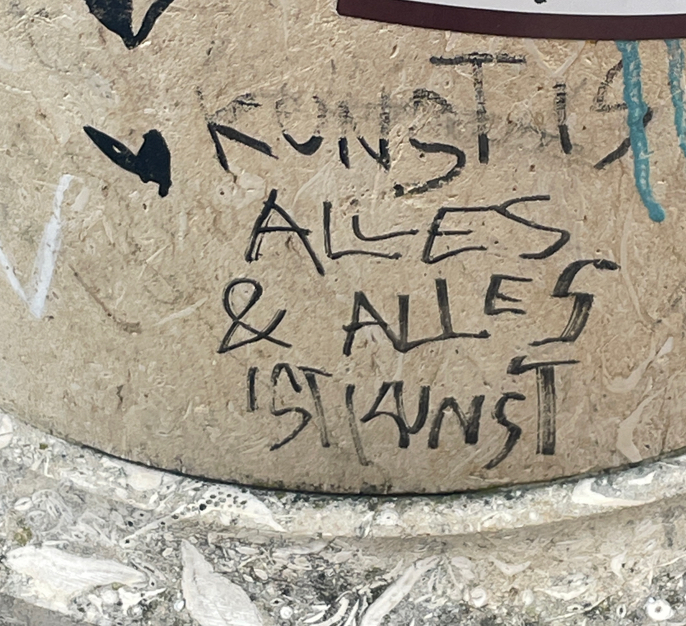 KUNST IS
ALLES
& ALLES
IST KUNST